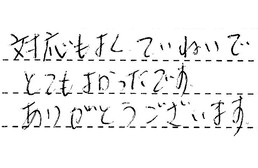 対応もよくていねいで
とてもよかったです
ありがとうございます